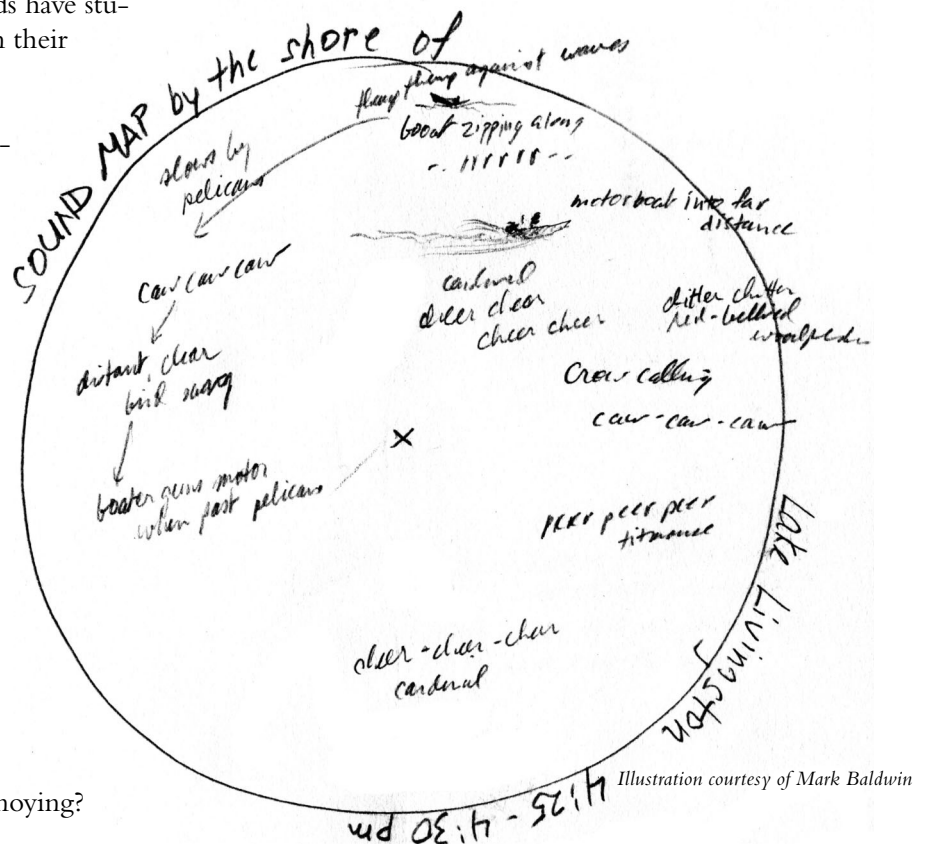 ds have stu-
n their
SOUND MAP by the shore of
thump thump against waves
boat zipping along
slows by
pelicans
motorboat into far
distance
caw caw caw
cardinal
cheer cheer
cheer cheer
chitter chitter
red-bellied
woodpecker
distant, clear
bird song
Crow calling
caw-caw-caw
boater guns motor
when past pelicans
X
peer peer peer
titmouse
Lake Livingston
cheer-cheer-cheer
cardinal
Illustration courtesy of Mark Baldwin
noying?
4:25 - 4:30 pm